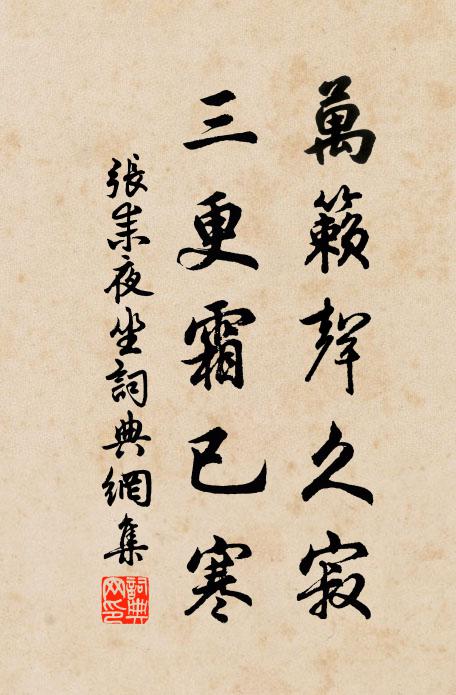 萬籟聲久寂
三更霜已寒
張耒夜坐詞典網集
詞典網印